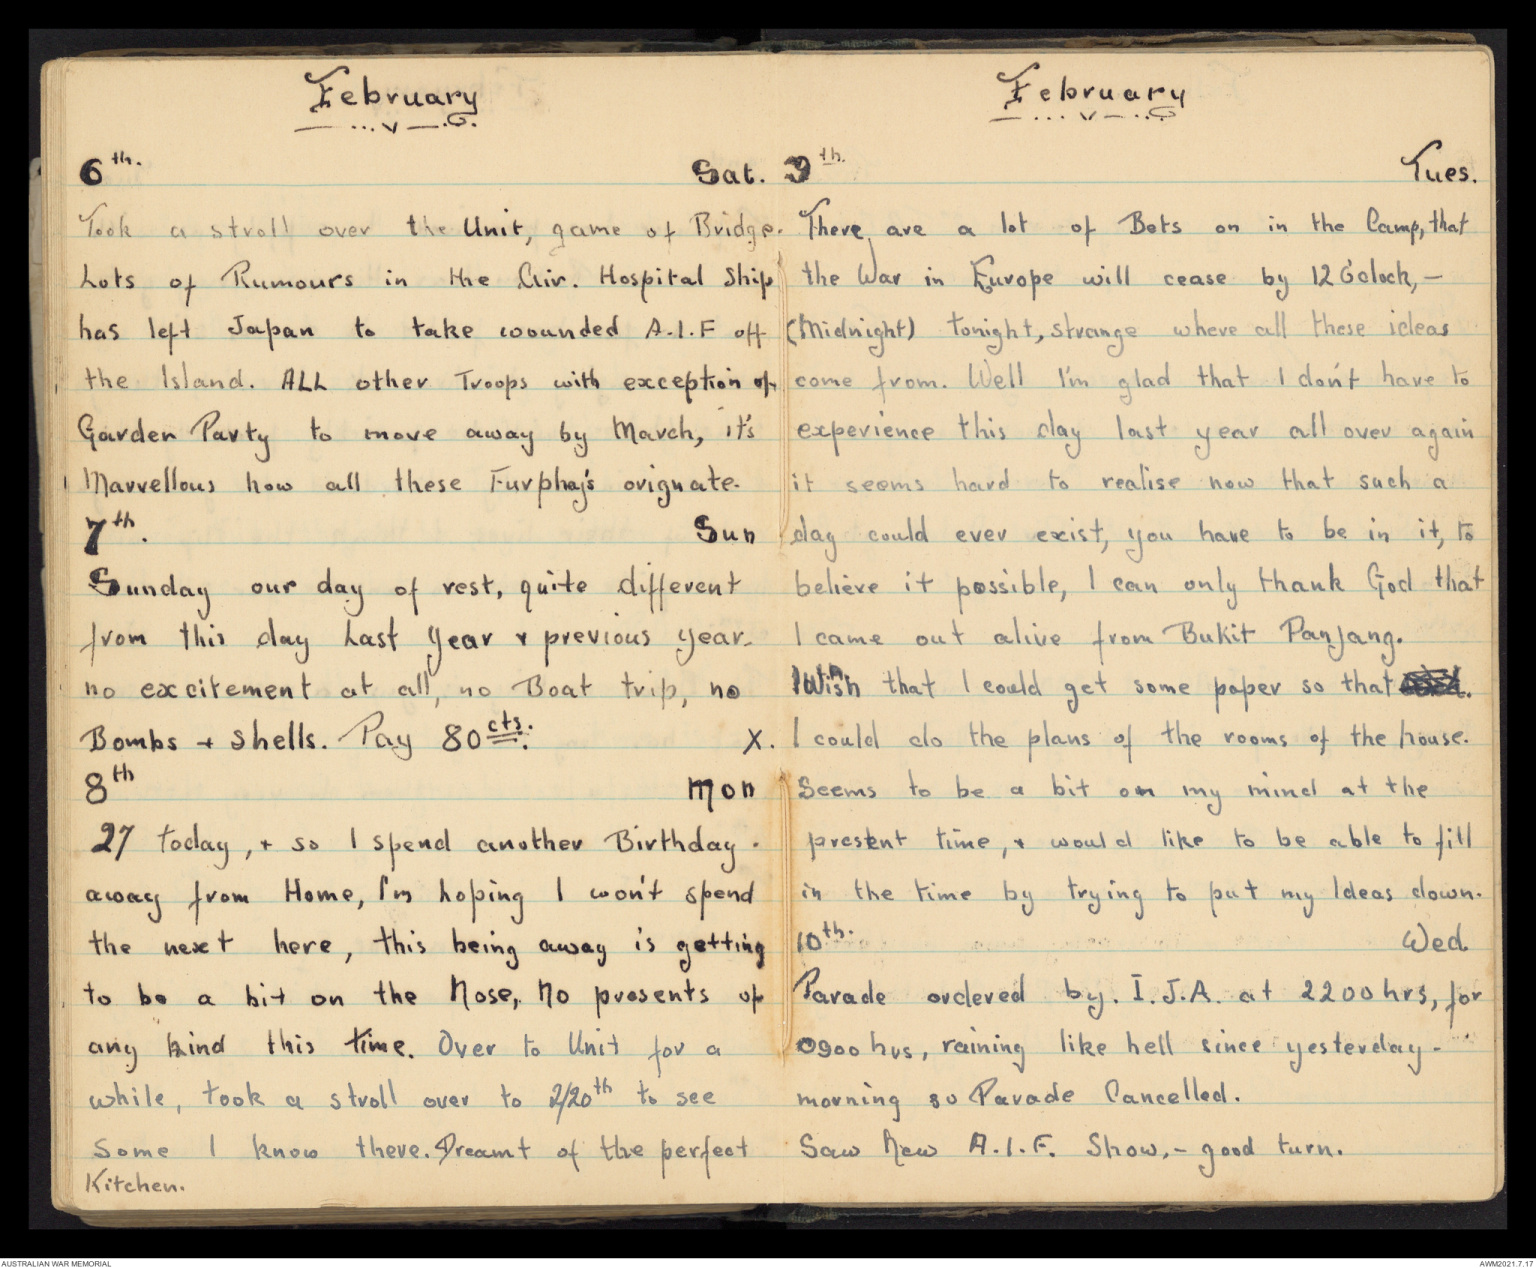 February
6th. Sat.
Took a stroll over the Unit, game of Bridge.
Lots of Rumours in the Air. Hospital Ship
has left Japan to take wounded A.I.F off
the Island. ALL other Troops with exception of
Garden Party to move away by March, it's
Marvellous how all these Furphay's orignate.
7th. Sun
Sunday our day of rest, quite different
from this day Last Year & previous year.
no excitement at all, no Boat trip, no
Bombs & Shells. Pay 80 cts. X.
8th Mon
27 today, & so I spend another Birthday.
away from Home, I'm hoping I won't spend
the next here, this being away is getting
to be a bit on the Nose, No presents of
any kind this time. Over to Unit for a
while, took a stroll over to 2/20th to see
Some I know there. Dreamt of the perfect
Kitchen.
February
9th. Tues.
There are a lot of Bets on in the Camp, that
the War in Europe will cease by 12 O'clock, -
(Midnight) tonight, strange where all these ideas
come from. Well I'm glad that I don't have to
experience this day last year all over again
it seems hard to realise now that such a
day could ever exist, you have to be in it, to
believe it possible, I can only thank God that
I came out alive from Bukit Panjang.
I Wish that I could get some paper so that
I could do the plans of the rooms of the house.
Seems to be a bit on my mind at the
present time, & would like to be able to fill
in the time by trying to put my Ideas down.
10th. Wed.
Parade ordered by. I.J.A. at 2200hrs, for
0900 hrs, raining like hell since yesterday -
morning so Parade Cancelled.
Saw New A.I.F. Show, - good turn.
AUSTRALIAN WAR MEMORIAL
AWM2021.7.17